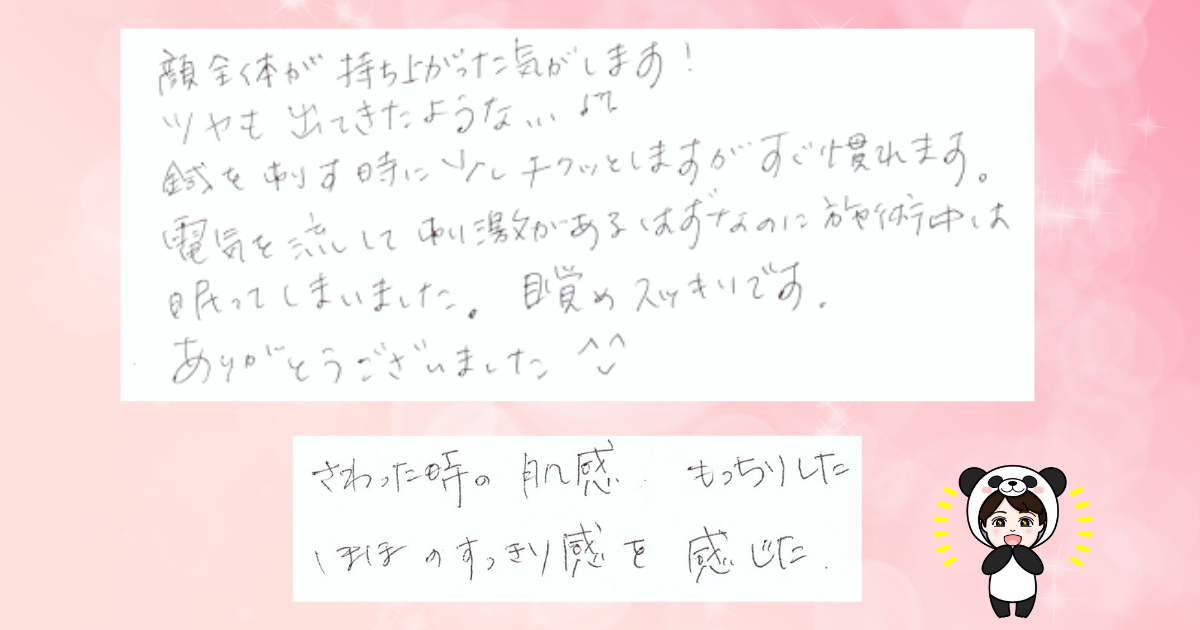 顔全体が持ち上がった気がします!
ツヤも出てきたような…
鍼を刺す時に少しチクッとしますがすぐ慣れます。
電気を流して刺激があるはずなのに施術中は
眠ってしまいました。目覚めスッキリです。
ありがとうございました ^^
さわった時の肌感 もっちりした
ほほのすっきり感を感じた.